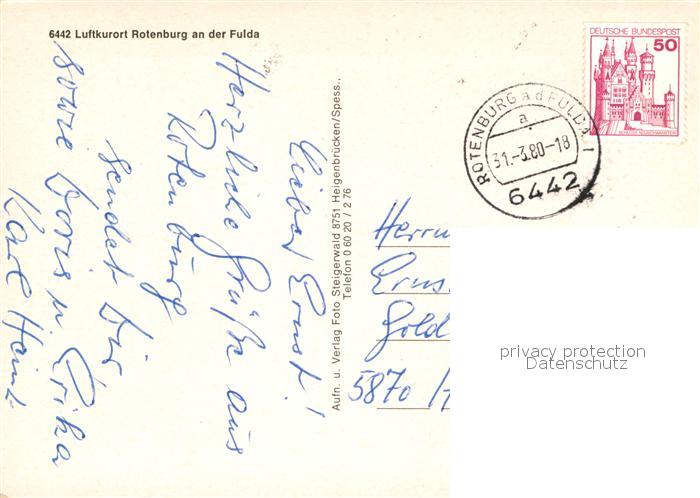 6442 Luftkurort Rotenburg an der Fulda
Lieber Ernst!
Herzliche Grüße aus
Rotenburg
sendet Dir
sowie Doris u. Erika
Karl Heinz
Aufn. u. Verlag Foto Steigerwald 8751 Heigenbrücken/Spess.,
Telefon 0 60 20 / 2 76
DEUTSCHE BUNDESPOST
50
SCHLOSS NEUSCHWANSTEIN
ROTENBURG a d FULDA 1
a
31.-3.80-18
6442
Herrn
Erns
Gold
5870 /
privacy protection
Datenschutz